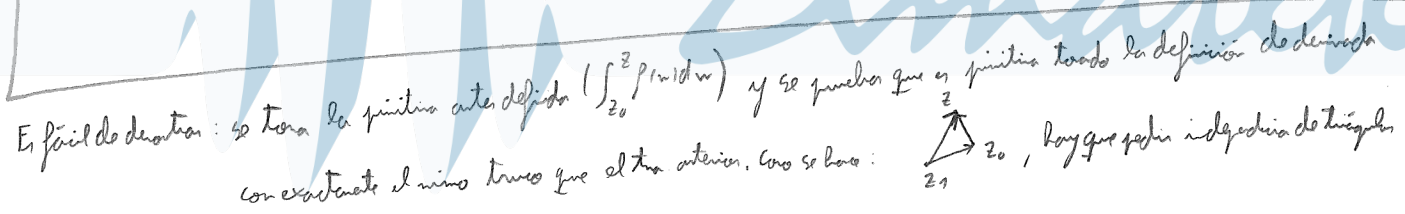 Es fácil de demostrar : se toma la primitiva antes definida (∫_{z_0}^{z} f(w)dw) y se prueba que es primitiva tomando la definición de derivada
con exactamente el mismo truco que el tma anterior. Como se hace : z z_0 z_1 , hay que pedir independencia de triángulos